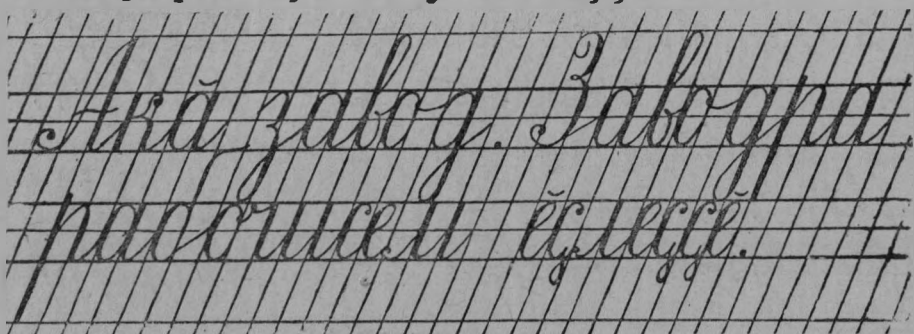 Акӑ завод. Заводра
рабочисем ӗҫлеҫҫӗ.